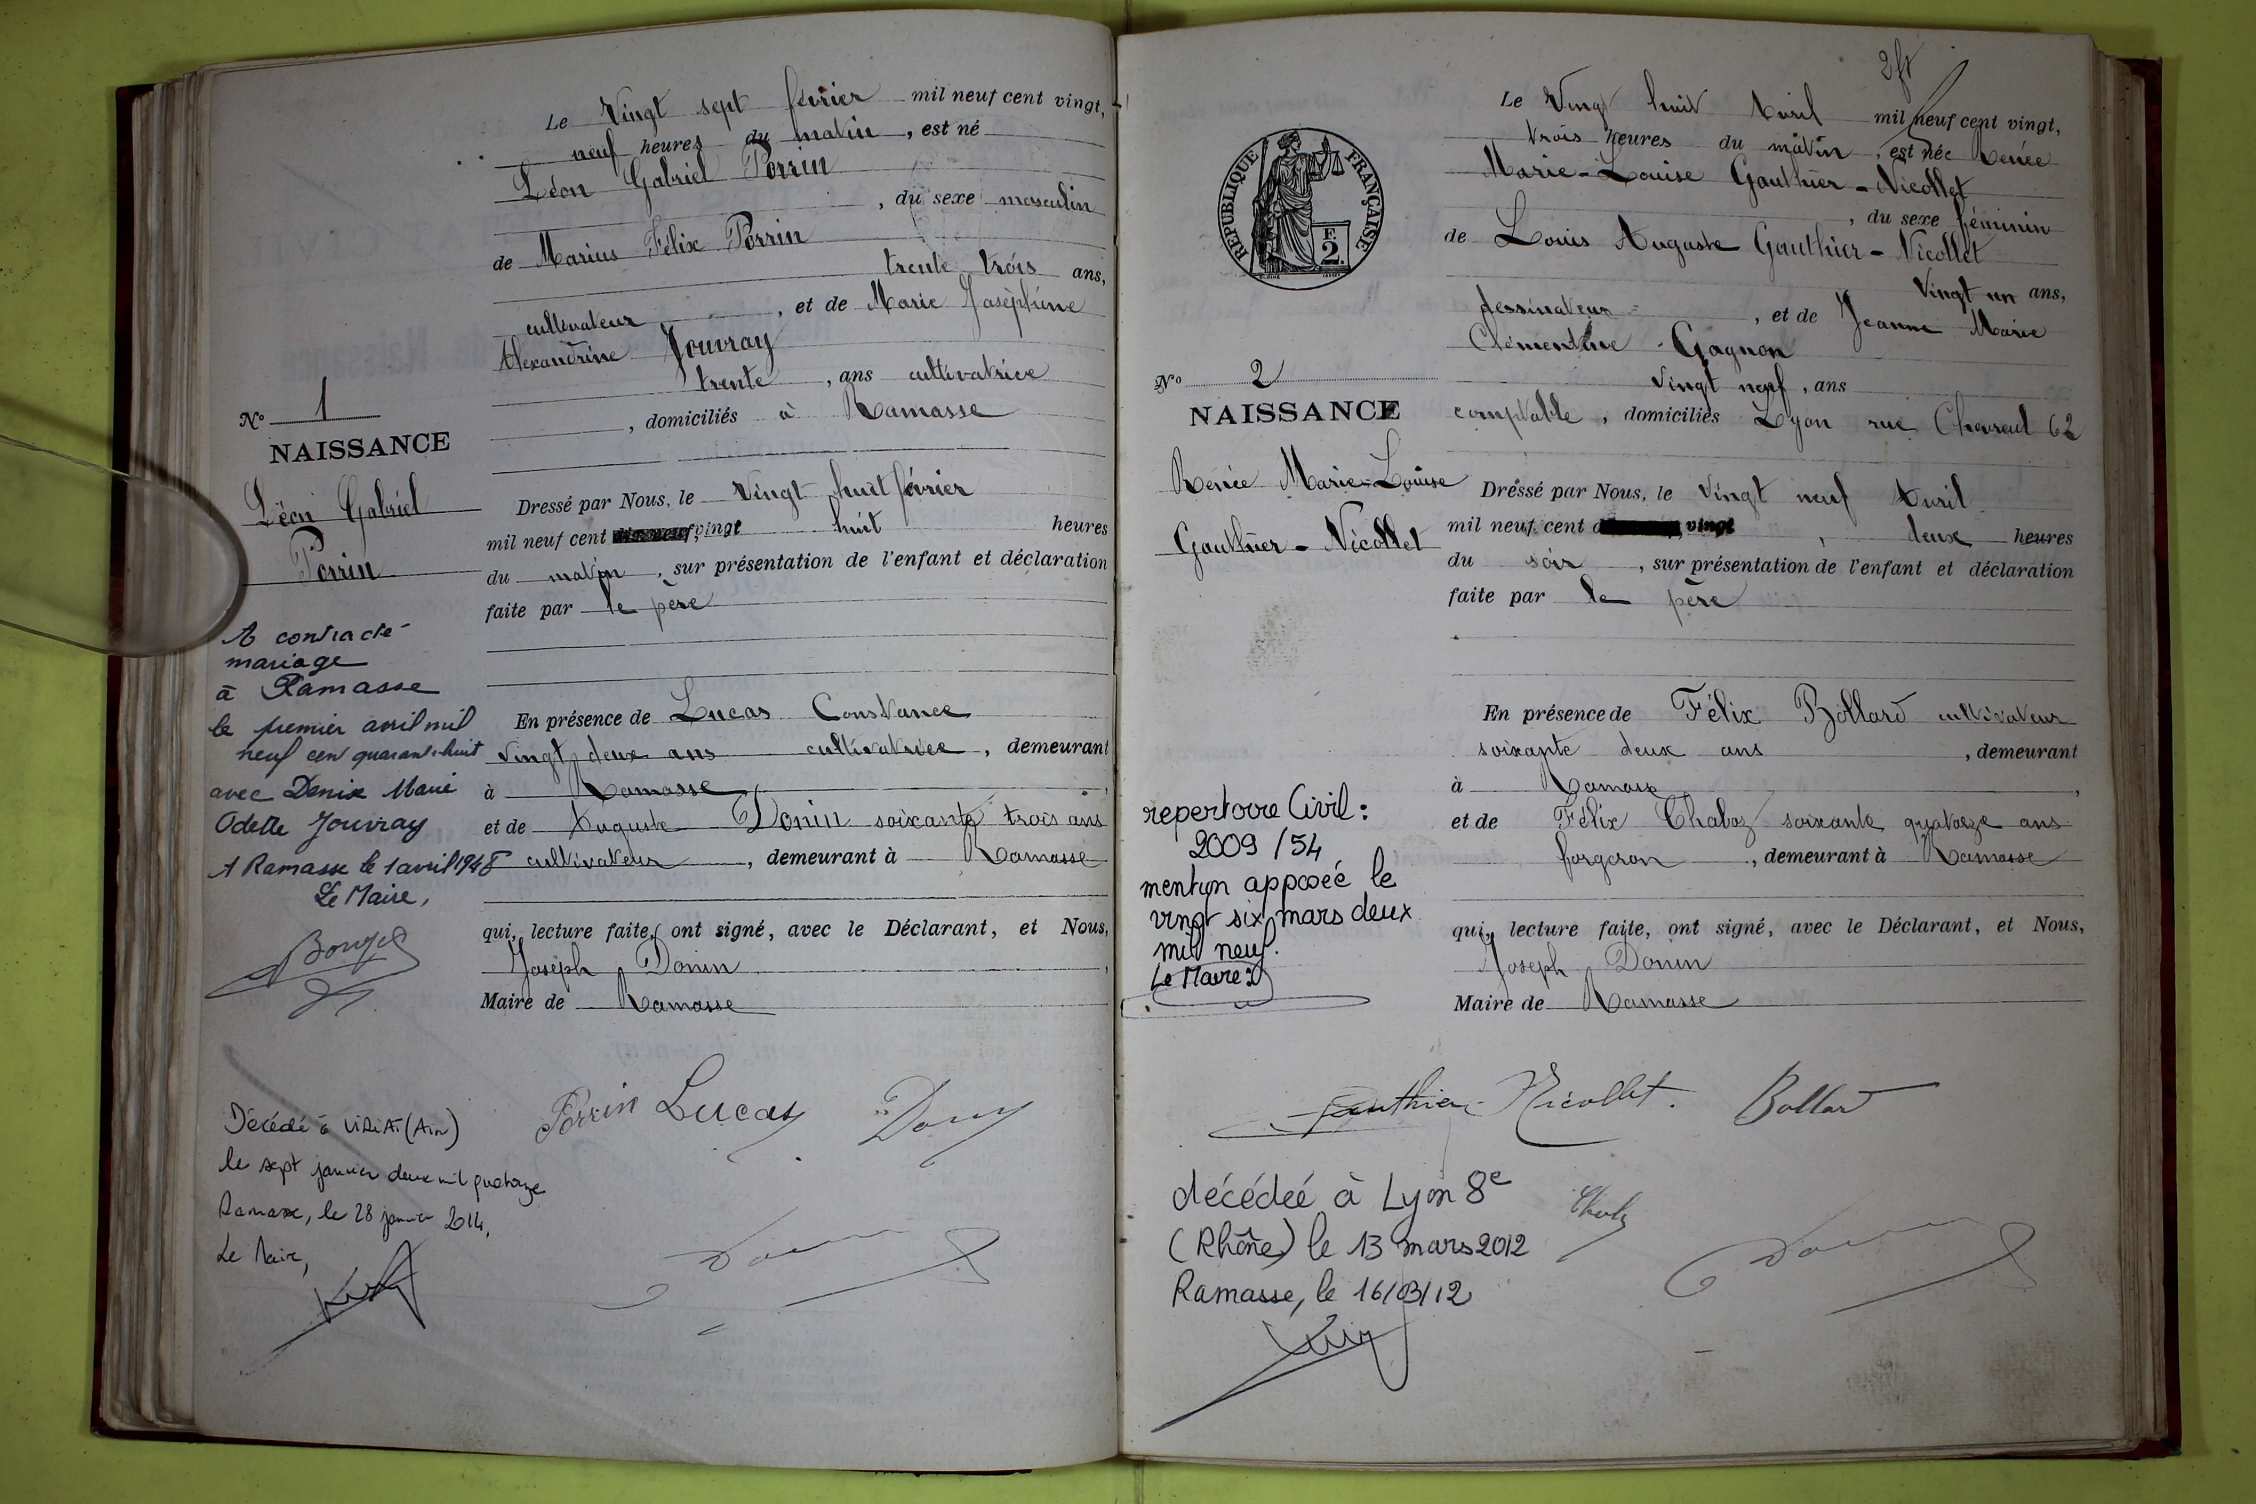 Le Vingt sept février mil neuf cent vingt,
neuf heures du matin, est né
Léon Gabriel Perrin
, du sexe masculin
de Marius Félix Perrin
trente trois ans,
cultivateur, et de Marie Joséphine
Alexandrine Jouvray
trente, ans cultivatrice
, domiciliés à Ramasse
No 1
NAISSANCE
Léon Gabriel
Perrin
Dressé par Nous, le Vingt huit février
mil neuf cent vingt huit heures
du matin, sur présentation de l'enfant et déclaration
faite par le père
A contracté
mariage
à Ramasse
le premier avril mil
neuf cent quarante-huit
avec Denise Marie
Odette Jouvray
A Ramasse le 1 avril 1948
Le Maire,
En présence de Lucas Constance
vingt deux ans cultivatrice, demeurant
à Ramasse
et de Auguste Donin soixante trois ans
cultivateur, demeurant à Ramasse
qui, lecture faite, ont signé, avec le Déclarant, et Nous,
Joseph Donin
Maire de Ramasse
Perrin Lucas
Décédé à VIRIAT (Ain)
le sept janvier deux mil quatorze
Ramasse, le 28 janvier 2014.
Le Maire,
Le Vingt huit Avril mil neuf cent vingt,
trois heures du matin, est née Renée
Marie-Louise Gauthier-Nicollet
, du sexe féminin
de Louis Auguste Gauthier-Nicollet
Vingt un ans,
dessinateur, et de Jeanne Marie
Clémentine Gagnon
Vingt neuf, ans
comptable, domiciliés Lyon rue Chevreul 62
RÉPUBLIQUE FRANÇAISE
F.
2.
No 2
NAISSANCE
Renée Marie-Louise
Gauthier-Nicollet
Dressé par Nous, le Vingt neuf Avril
mil neuf cent vingt, deux heures
du soir, sur présentation de l'enfant et déclaration
faite par le père
En présence de Félix Bollard cultivateur
soixante deux ans, demeurant
à Ramasse,
et de Félix Chaboz soixante quatorze ans
forgeron, demeurant à Ramasse
repertoire Civil :
2009/54
mention apposée le
vingt six mars deux
mil neuf.
Le Maire :
qui, lecture faite, ont signé, avec le Déclarant, et Nous,
Joseph Donin
Maire de Ramasse
Gauthier-Nicollet. Bollard
décédée à Lyon 8e
(Rhône) le 13 mars 2012
Ramasse, le 16/03/12